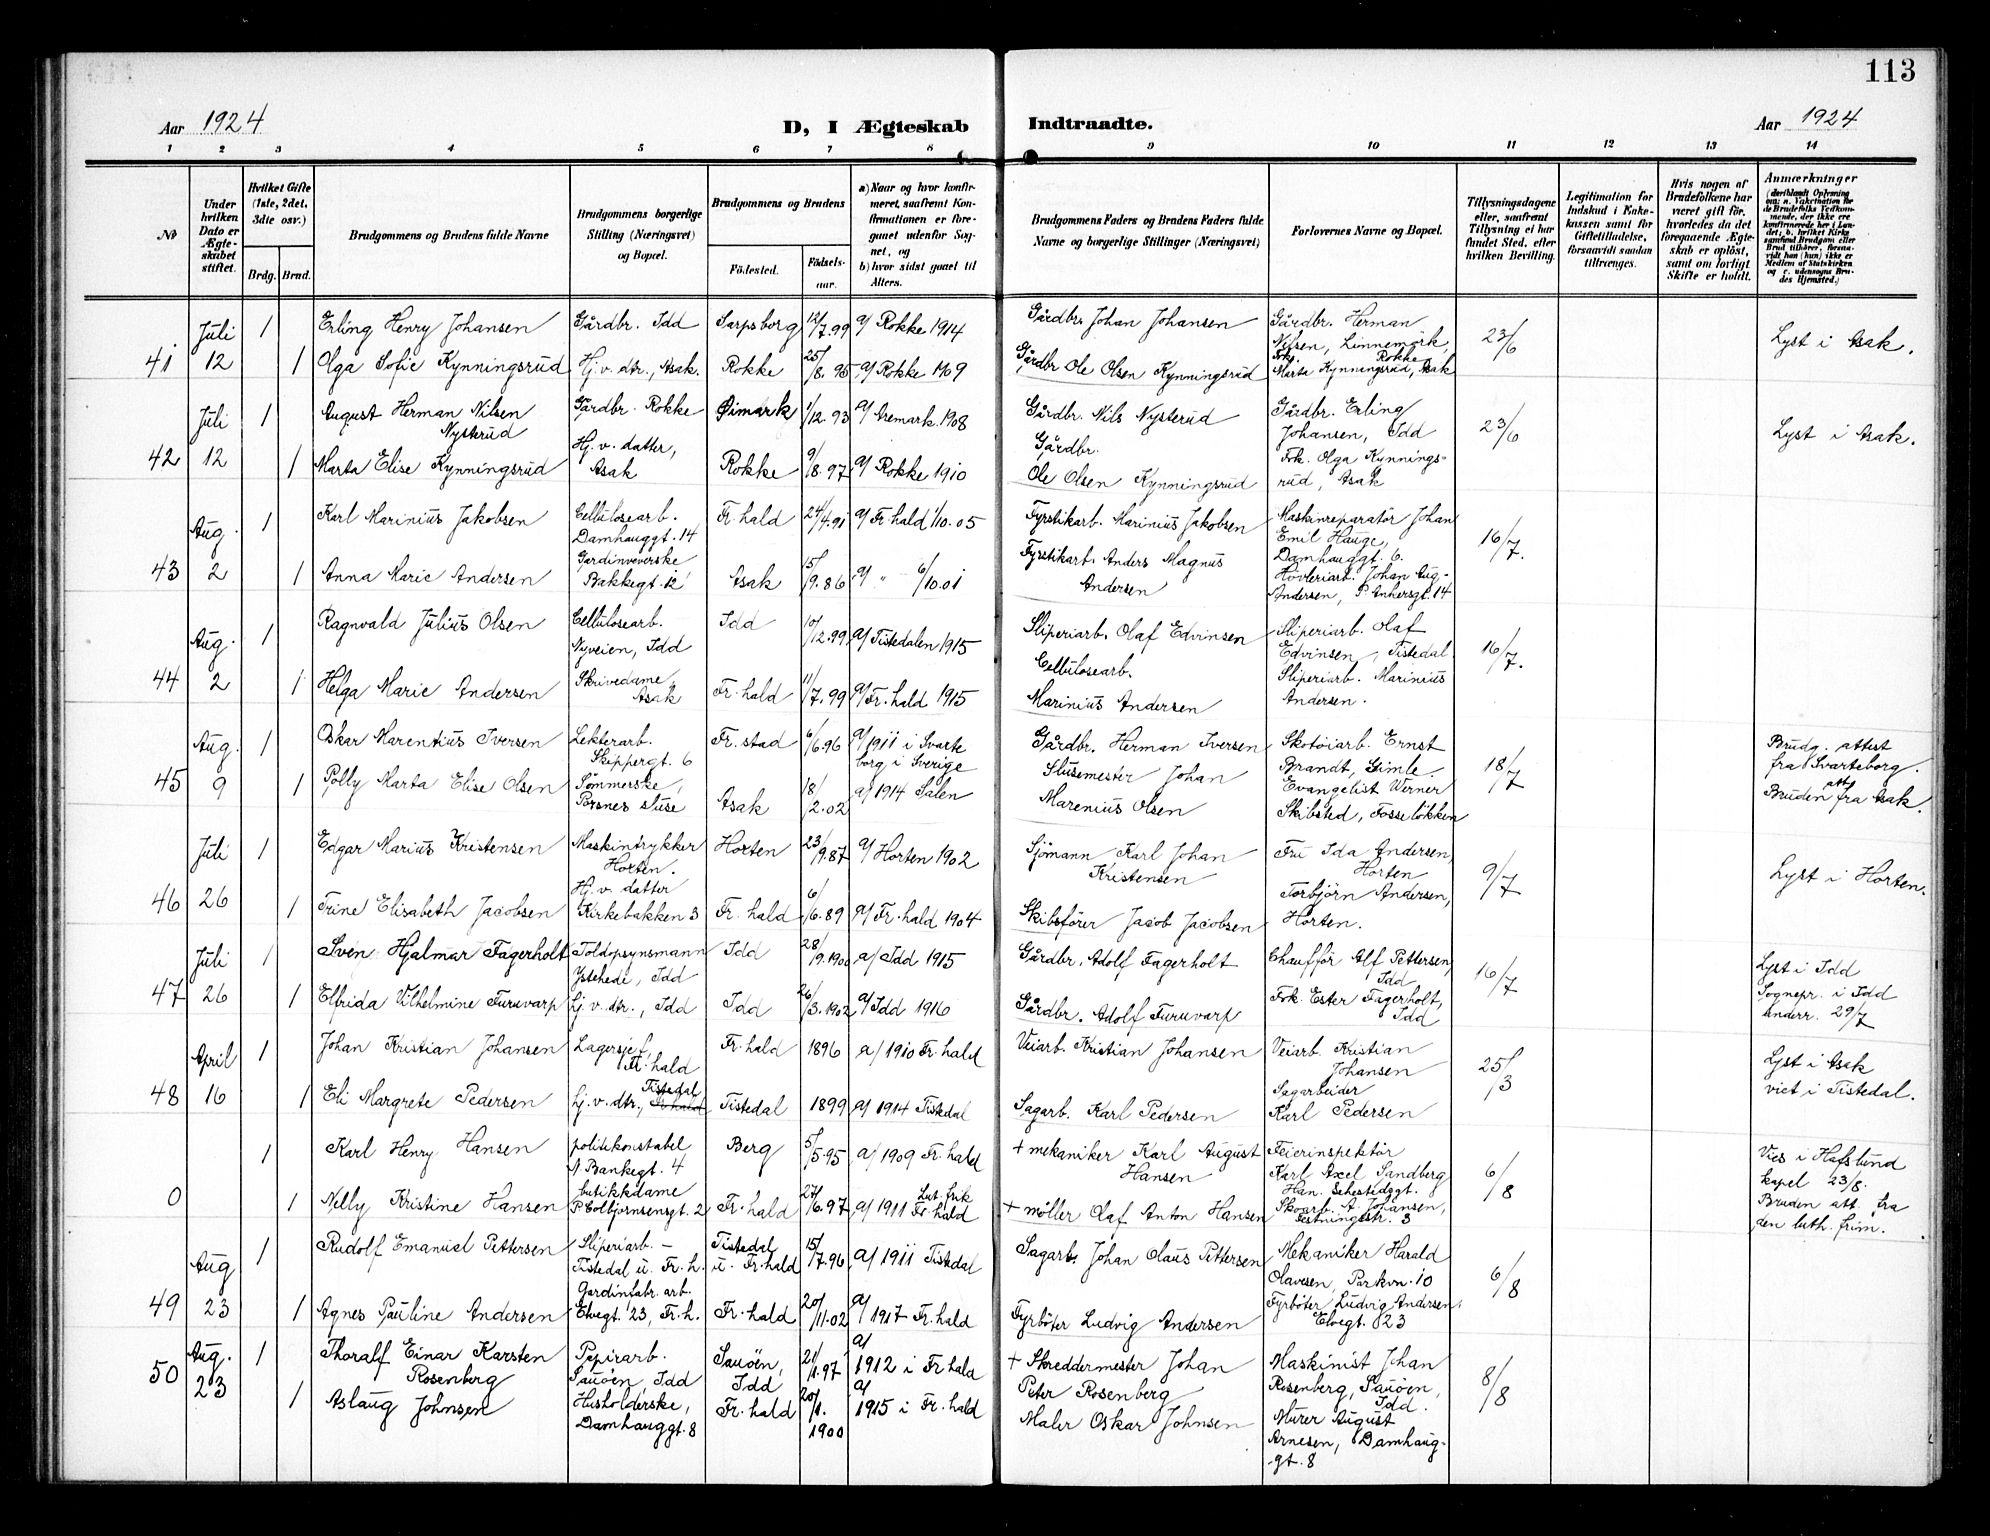 113
Aar 1924
D, I Ægteskab
Indtraadte.
Aar 1924
1 2 3 4 5 6 7 8 9 10 11 12 13 14
№
Under hvilken Dato er Ægteskabet stiftet.
Hvilket Gifte (1ste, 2det. 3dte osv.)
Brdg. Brud.
Brudgommens og Brudens fulde Navne
Brudgommens borgerlige Stilling (Næringsvei) og Bopæl.
Brudgommens og Brudens
Fødested.
Fødselsaar.
a) Naar og hvor konfirmeret, saafremt Konfirmationen er foregaaet udenfor Sognet, og
b) hvor sidst gaaet til Alters.
Brudgommens Faders og Brudens Faders fulde Navne og borgerlige Stillinger (Næringsvei)
Forlovernes Navne og Bopæl.
Tillysningsdagene eller, saafremt Tillysning ei har fundet Sted, efter hvilken Bevilling.
Legitimation for Indskud i Enkekassen samt for Giftetilladelse, forsaavidt saadan tiltrænges.
Hvis nogen af Brudefolkene har været gift før, hvorledes da det foregaaende Ægteskab er opløst, samt om lovligt Skifte er holdt.
Anmærkninger
41 Juli 12 1 Erling Henry Johansen Gårdbr. Idd Sarpsborg 12/7.99 a/ Rokke 1914 Gårdbr. Johan Johansen Gårdbr. Herman Nilsen, Linnemørk, Rokke 23/6 Lyst i Asak.
1 Olga Sofie Kynningsrud Hj.v. dtr., Asak. Rokke 25/8.95 a/ Rokke 1909 Gårdbr Ole Olsen Kynningsrud Frk. Marta Kynningsrud, Asak
42 Juli 12 1 August Herman Nilsen Nysterud Gårdbr. Rokke Øimark 1/12.93 a/ Aremark 1908 Gårdbr. Nils Nysterud Gårdbr. Erling Johansen, Idd 23/6 Lyst i Asak.
1 Marta Elise Kynningsrud Hj.v. datter, Asak Rokke 9/8.97 a/ Rokke 1910 Gårdbr. Ole Olsen Kynningsrud Frk. Olga Kynningsrud, Asak
43 Aug. 2 1 Karl Marinius Jakobsen Cellulosearb. Damhauggt. 14 Fr.hald 24/4.91 a/ Fr.hald 1/10.05 Fyrstikarb. Marinius Jakobsen Maskinreparatør Johan Emil Hauge, Damhauggt. 6. 16/7.
1 Anna Marie Andersen Gardinvæverske Bakkegt. 12 Asak 15/9.86 a/ " 6/10.01 Fyrstikarb. Anders Magnus Andersen Høvleriarb. Johan Aug. Andersen, P. Ankersgt. 14
44 Aug. 2 1 Ragnvald Julius Olsen Cellulosearb. Nyveien, Idd Idd 10/12.99 a/ Tistedalen 1915 Sliperiarb. Olaf Edvinsen Sliperiarb. Olaf Edvinsen, Tistedal 16/7.
1 Helga Marie Andersen Skrivedame, Asak Fr.hald 11/7.99 a/ Fr.hald 1915 Cellulosearb. Marinius Andersen Sliperiarb. Marinius Andersen.
45 Aug. 9 1 Oskar Marentius Iversen Lekterarb. Skippergt. 6 Fr.stad 6/6.96 a/ 1911 i Svarteborg, i Sverige Gårdbr. Herman Iversen Skotøiarb. Ernst Brandt, Gimle. 18/7 Brudg. attest fra Svarteborg.
1 Polly Marta Elise Olsen Sømmerske, Porsnes sluse Asak 18/2.02 a/ 1914 Salen Slusemester Johan Marenius Olsen Evangelist Werner Skibsted, Fosseløkken Bruden att. fra Asak.
46 Juli 26 1 Edgar Marius Kristensen Maskintrykker Horten. Horten 23/9.87 a/ Horten 1902 Sjømann Karl Johan Kristensen Fru Ida Andersen, Horten 9/7 Lyst i Horten.
1 Trine Elisabeth Jacobsen Hj.v. datter Kirkebakken 3 Fr.hald 6/6.89 a/ Fr.hald 1904 Skibsfører Jacob Jacobsen Torbjørn Andersen, Horten.
47 Juli 26 1 Sven Hjalmar Fagerholt Toldopsynsmann Ystehede, Idd Idd 28/9.1900 a/ Idd 1915 Gårdbr. Adolf Fagerholt Chauffør Alf Pettersen, Idd 16/7 Lyst i Idd Sognepr. i Idd underr. 29/7
1 Elfrida Vilhelmine Furuvarp hj.v. dtr., Idd Idd 26/3.1902 a/ Idd 1916 Gårdbr. Adolf Furuvarp Frk. Ester Fagerholt, Idd
48 April 16 1 Johan Kristian Johansen Lagersjef, Fr.hald Fr.hald 1896 a/ 1910 Fr.hald Veiarb. Kristian Johansen Veiarb. Kristian Johansen 25/3 Lyst i Asak viet i Tistedal.
1 Eli Margrete Pedersen hj.v. dtr., Tistedal Fr.hald Tistedal 1899 a/ 1914 Tistedal Sagarb. Karl Pedersen Sagarbeider Karl Pedersen
0 1 Karl Henry Hansen politikonstabel N Bankegt. 4 Berg 5/5.95 a/ 1909 Fr.hald + mekaniker Karl August Hansen Feierinspektør Karl Axel Sandberg Han. Sehestedgt. 6/8 Vies i Hafslund kapel 23/8.
1 Nelly Kristine Hansen butikkdame P Colbjørnsensgt. 2 Fr.hald 27/6.97 a/ 1911 Lut. frik Fr.hald + møller Olaf Anton Hansen Skoarb. A. Johansen, Festningsstr. 3 Bruden att. fra den luth. frim.
49 Aug 23 1 Rudolf Emanuel Pettersen Sliperiarb. – Tistedal u. Fr.h. Tistedal u. Fr.hald 15/7.96 a/ 1911 Tistedal Sagarb. Johan Olaus Pettersen Mekaniker Harald Olavesen, Parkvn. 10 6/8
1 Agnes Pauline Andersen Gardinfabr. arb. Elvegt. 23, Fr.h. Fr.hald 20/11.02 a/ 1917 Fr.hald Fyrbøter Ludvig Andersen Fyrbøter Ludvig Andersen, Elvegt. 23
50 Aug. 23 1 Thoralf Einar Karsten Rosenberg Papirarb. Sauøen, Idd Sauøen, Idd 21/1.97 a/ 1912 i Fr.hald + Skreddermester Johan Peter Rosenberg Maskinist Johan Rosenberg, Sauøen, Idd. 8/8
1 Aslaug Johnsen Husholderske, Damhauggt. 8 Fr.hald 20/1. 1900 a/ 1915 i Fr.hald Maler Oskar Johnsen Murer August Arnesen, Damhauggt. 8